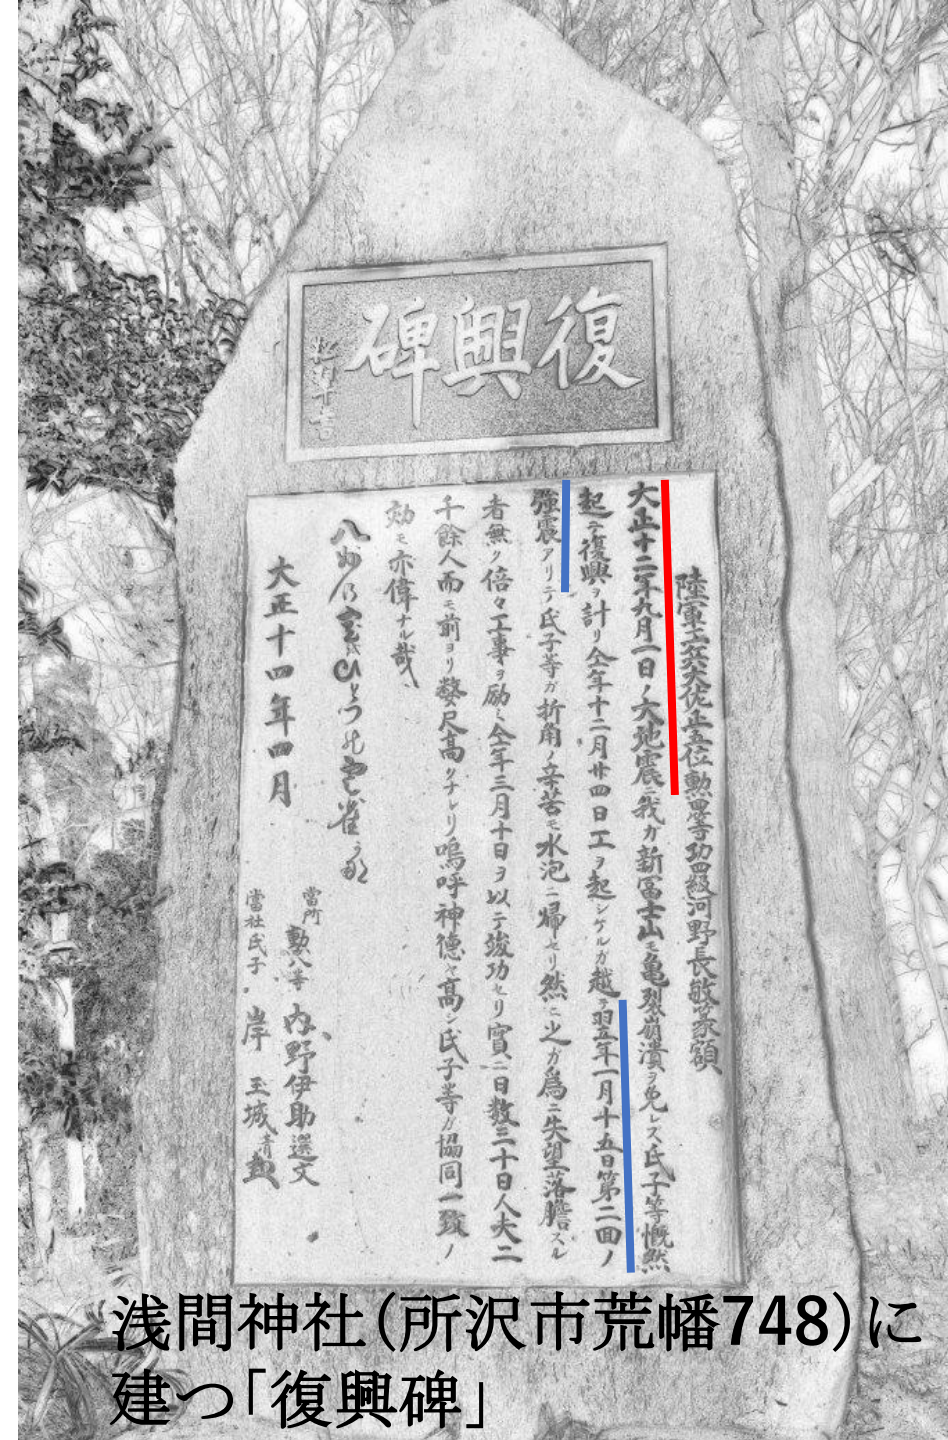 復興碑
陸軍工兵大佐正五位勲四等功四級河野長敏篆額
大正十二年九月一日ノ大地震ニ我ガ新冨士山モ亀裂崩潰ヲ免レス氏子等慨然
起テ復興ヲ計リ仝年十二月廿四日工ヲ起シケルガ越テ翌年一月十五日第二囬ノ
強震アリテ氏子等ガ折角ノ辛苦モ水泡ニ帰セリ然ニ之ガ為ニ失望落膽スル
者無ク倍々工事ヲ励ミ仝年三月十日ヲ以テ竣功セリ實ニ日数三十日人夫二
千餘人而モ前ヨリ數尺高クナレリ嗚呼神徳ハ高シ氏子等ガ協同一致ノ
効モ亦偉ナル哉
大正十四年四月
當所 勲八等 内野伊助選文
當社氏子 岸 玉城
浅間神社(所沢市荒幡748)に
建つ「復興碑」